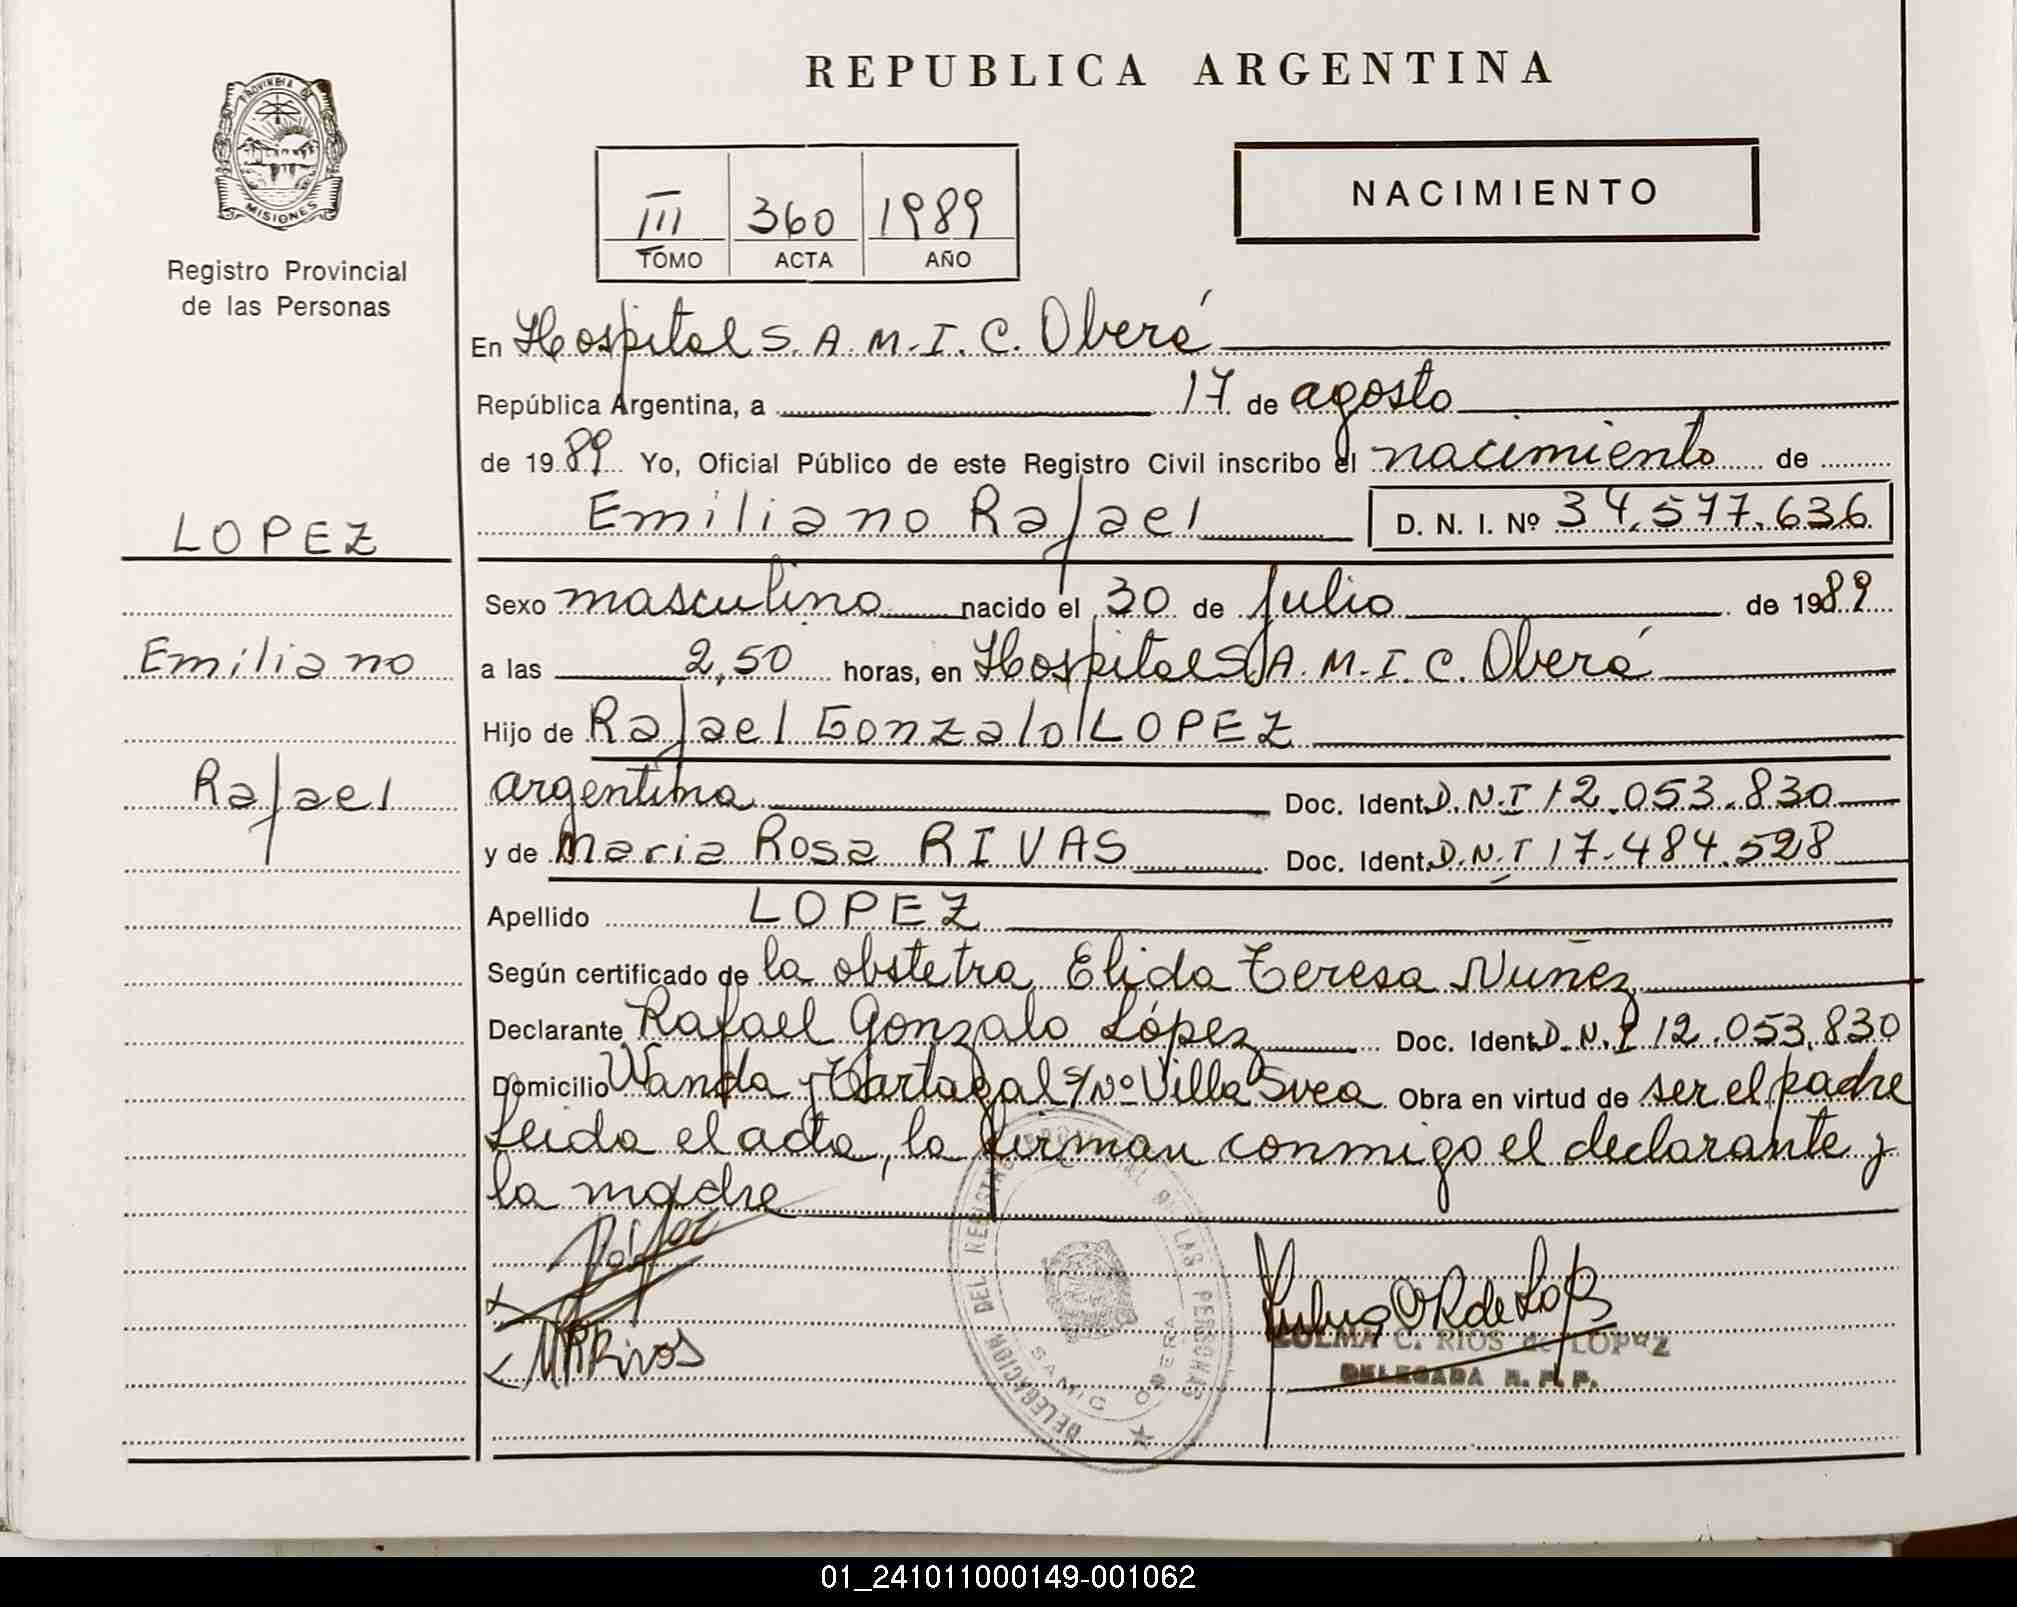 REPUBLICA ARGENTINA
PROVINCIA DE
MISIONES
Registro Provincial
de las Personas
III 360 1989
TOMO ACTA AÑO
NACIMIENTO
En Hospital S.A.M.I.C. Oberá
República Argentina, a 17 de agosto
de 1989 Yo, Oficial Público de este Registro Civil inscribo el nacimiento de
Emiliano Rafael D. N. I. Nº 34.577.636
LOPEZ
Emiliano
Rafael
Sexo masculino nacido el 30 de Julio de 1989
a las 2,50 horas, en Hospital S.A.M.I.C. Oberá
Hijo de Rafael Gonzalo LOPEZ
argentina Doc. Ident. D.N.I 12.053.830
y de Maria Rosa RIVAS Doc. Ident. D.N.I 17.484.528
Apellido LOPEZ
Según certificado de la obstetra Elida Teresa Nuñez
Declarante Rafael Gonzalo López Doc. Ident. D.N.I 12.053.830
Domicilio Wanda y Tartagal s/Nº Villa Svea Obra en virtud de ser el padre
Leida el acta, la firman conmigo el declarante y
la madre
MRRivas
DELEGACION DEL REGISTRO PROVINCIAL DE LAS PERSONAS
SAMIC OBERA
C. RIOS de LOPEZ
DELEGADA R. P. P.
01_241011000149-001062